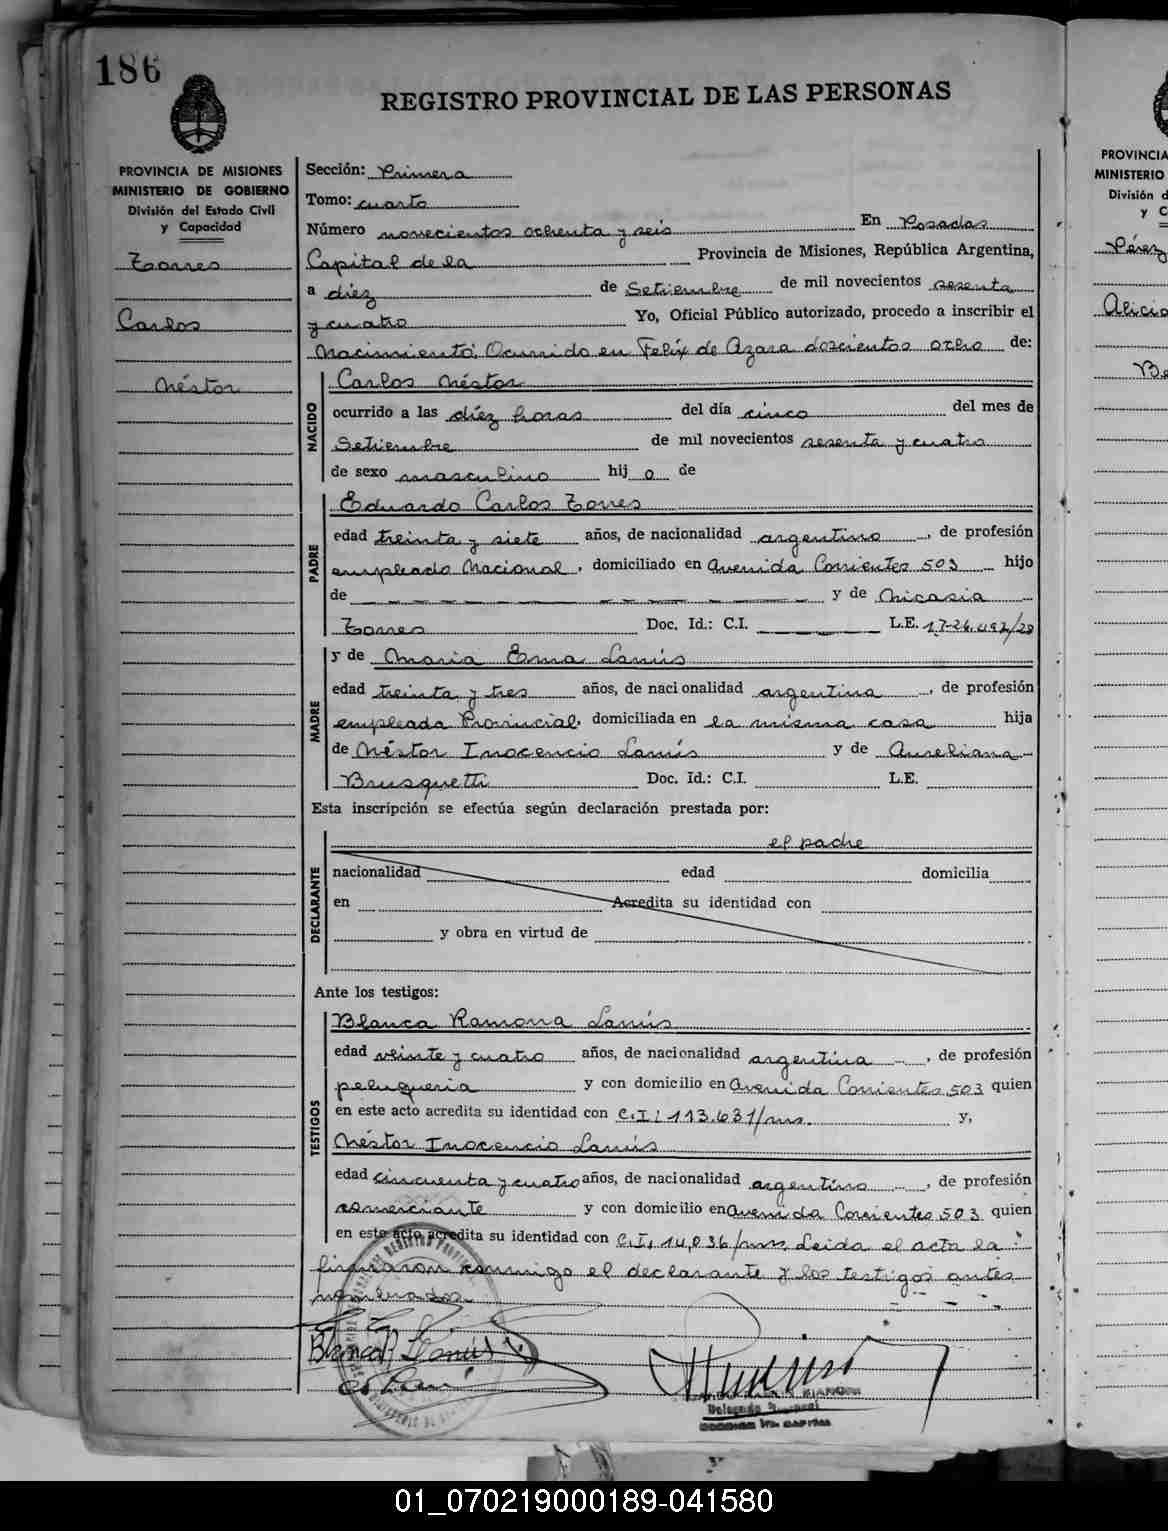 186
REGISTRO PROVINCIAL DE LAS PERSONAS
PROVINCIA DE MISIONES
MINISTERIO DE GOBIERNO
División del Estado Civil
y Capacidad
Torres
Carlos
Néstor
Sección: Primera
Tomo: cuarto
Número novecientos ochenta y seis En Posadas
Capital de la Provincia de Misiones, República Argentina,
a diez de Setiembre de mil novecientos sesenta
y cuatro Yo, Oficial Público autorizado, procedo a inscribir el
Nacimiento Ocurrido en Felix de Azara doscientos ocho de:
NACIDO
Carlos Néstor
ocurrido a las diez horas del día cinco del mes de
Setiembre de mil novecientos sesenta y cuatro
de sexo masculino hij o de
PADRE
Eduardo Carlos Torres
edad treinta y siete años, de nacionalidad argentino, de profesión
empleado Nacional, domiciliado en Avenida Corrientes 503 hijo
de y de Nicasia
Torres Doc. Id.: C.I. L.E.
MADRE
y de Maria Ema Lanús
edad treinta y tres años, de nacionalidad argentina, de profesión
empleada Provincial, domiciliada en la misma casa hija
de Néstor Inocencio Lanús y de Aureliana
Brusquetti Doc. Id.: C.I. L.E.
Esta inscripción se efectúa según declaración prestada por:
DECLARANTE
el padre
nacionalidad edad domicilia
en Acredita su identidad con
y obra en virtud de
Ante los testigos:
TESTIGOS
Blanca Ramona Lanús
edad veinte y cuatro años, de nacionalidad argentina, de profesión
peluqueria y con domicilio en Avenida Corrientes 503 quien
en este acto acredita su identidad con C.I: 113.631/ms. y,
Néstor Inocencio Lanús
edad cincuenta y cuatro años, de nacionalidad argentino, de profesión
comerciante y con domicilio en Avenida Corrientes 503 quien
en este acto acredita su identidad con C.I. 14.036/ms. Leida el acta la
firmaron conmigo el declarante y los testigos antes
nombrados.
Blanca R. Lanús
PROVINCIA
MINISTERIO
División d
y C
Pérez
Alicia
Be
01_070219000189-041580